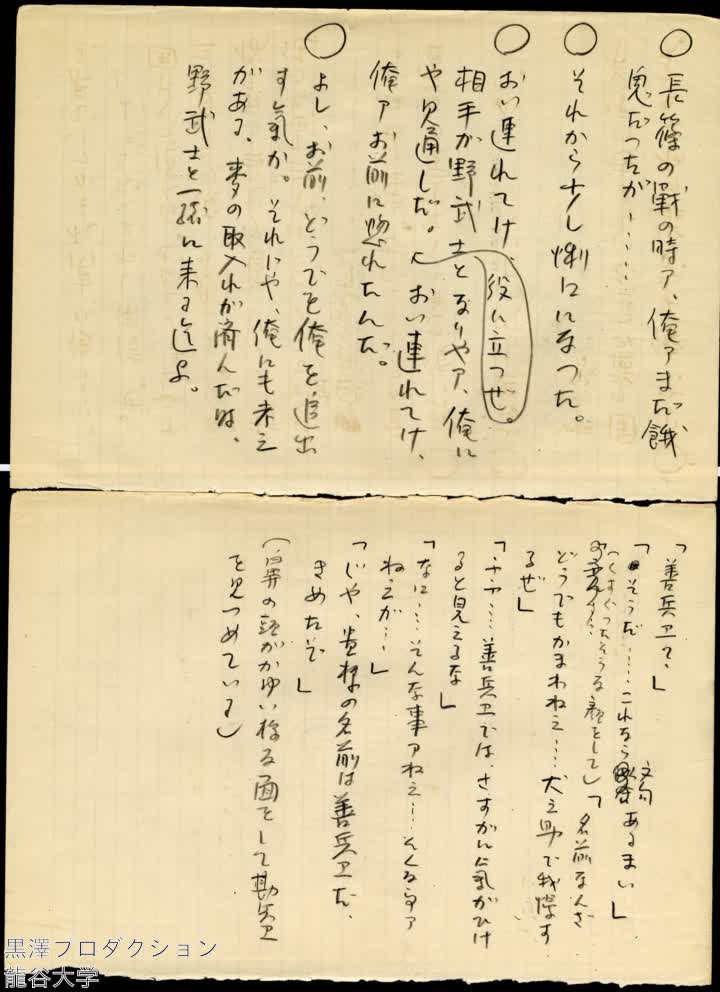 ○ 長篠の戰の時ア、俺アまだ餓
鬼だつたが……
○ それから少し悧口になつた。
○ おい連れてけ、役に立つぜ。
相手が野武士となりやア、俺に
や見通しだ。おい連れてけ、
俺アお前に惚れたんだ。
○ よし、お前、どうでも俺を追出
す気か。それじや、俺にも考え
がある、麦の取入れが済んだら、
野武士と一緒に来るよ。
「善兵ヱて、」
「そうだ……これなら文句あるまい」
(くすぐつたそうな顔をして)「名前なんざ
どうでもかまわねえ…犬之助で我慢す
るぜ」
「フフ……善兵ヱでは、さすがに気がひけ
ると見えるな」
「なに……そんな事アねえ…そんな事ア
ねえが…」
「じや、貴様の名前は善兵ヱだ、
きめたぞ」
(鼻の頭がかゆい様な面をして勘兵ヱ
を見つめている)
黒澤プロダクション
龍谷大学